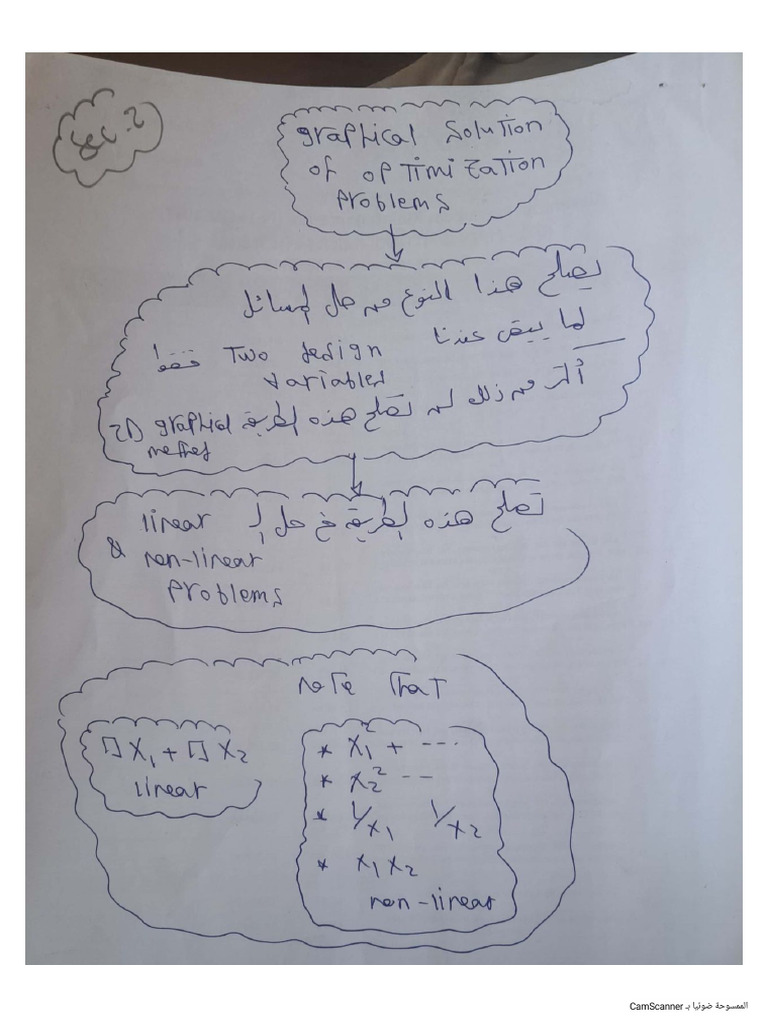 Sec.2
graphical solution
of optimization
Problems
يصلح هذا النوع من حل المسائل
لما يبقى عندنا Two design variables فقط
أكثر من ذلك لن تصلح هذه الطريقة 2D graphical method
تصلح هذه الطريقة في حل الـ linear
& non-linear
Problems
note that
[] X₁ + [] X₂
linear
* X₁² + ---
* X₂² --
* 1/X₁ 1/X₂
* X₁X₂
non-linear
الممسوحة ضوئيا بـ CamScanner